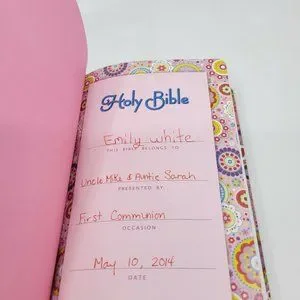 Holy Bible
Emily White
THIS BIBLE BELONGS TO
Uncle Mike & Auntie Sarah
PRESENTED BY
First Communion
OCCASION
May 10, 2014
DATE